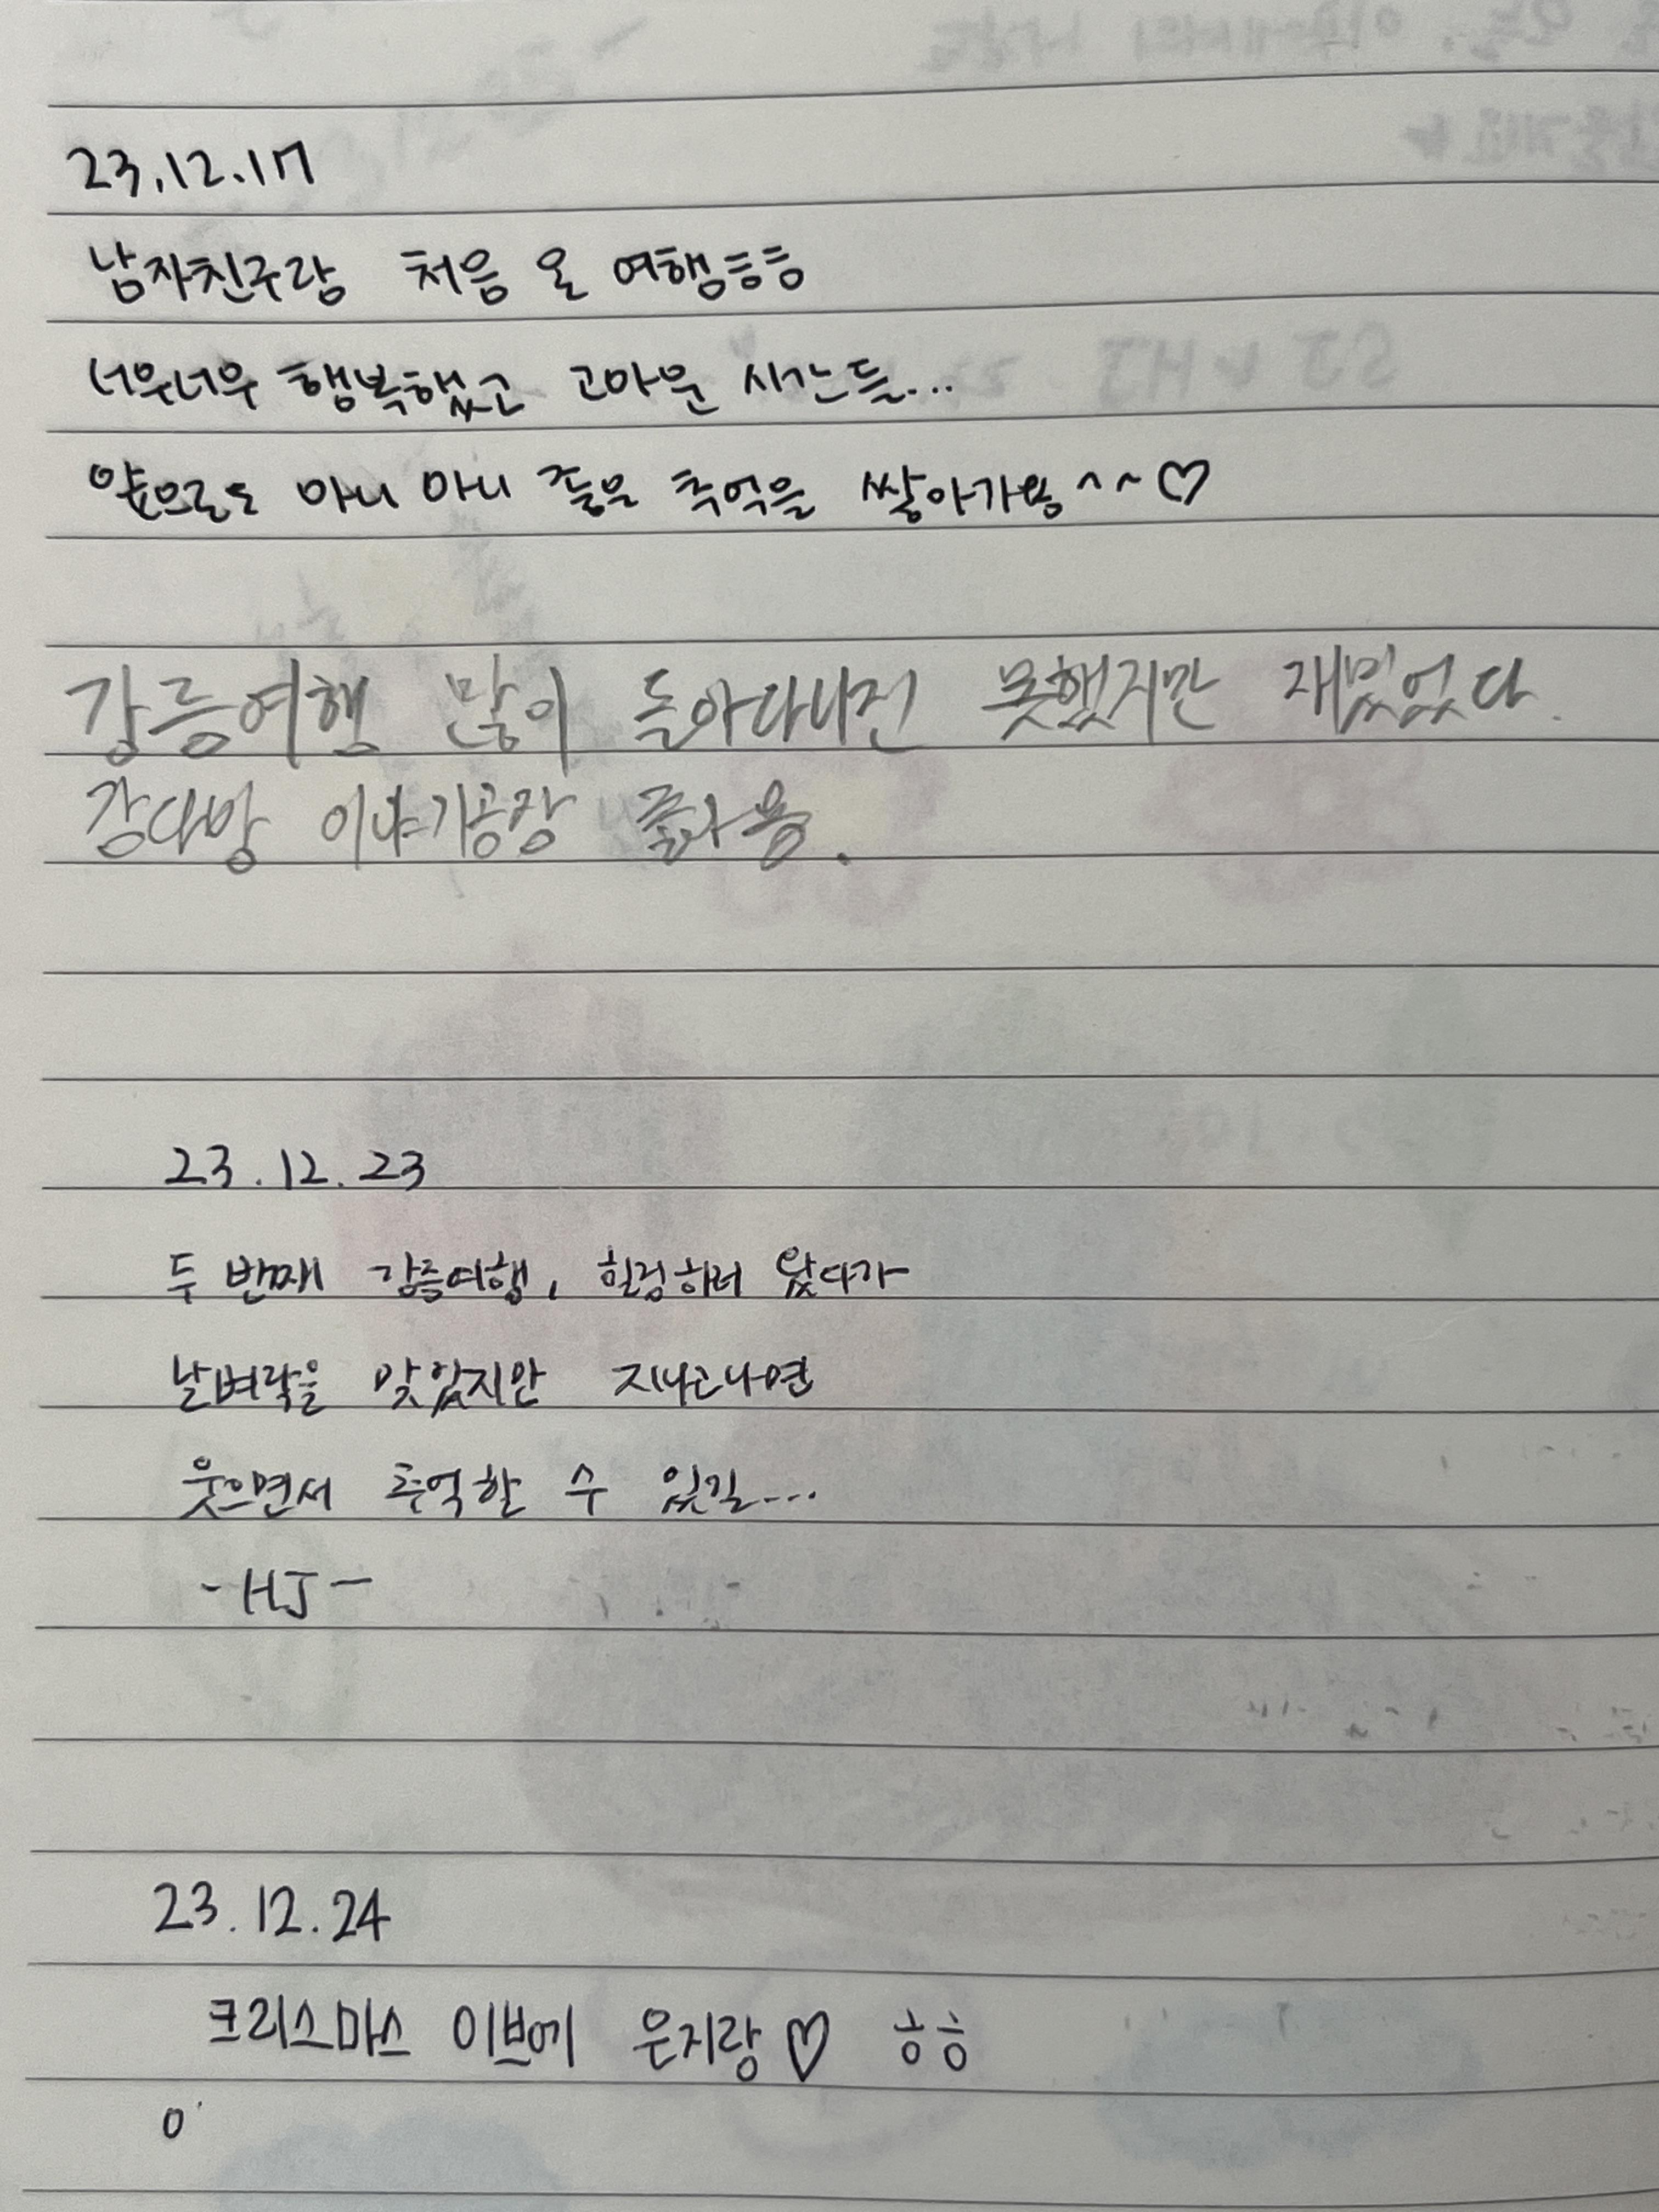 23.12.17
남자친구랑 처음 온 여행ㅎㅎ
너무너무 행복했고 고마운 시간들...
앞으로도 마니 마니 좋은 추억을 쌓아가용^~♡
강릉여행 많이 돌아다니진 못했지만 재밌었다.
강다방 이야기공장 좋아용.
23.12.23
두 번째 강릉여행, 힐링하러 왔다가
날벼락을 맞았지만 지나고나면
웃으면서 추억할 수 있길...
-HJ-
23.12.24
크리스마스 이브에 은지랑♡ ㅎㅎ